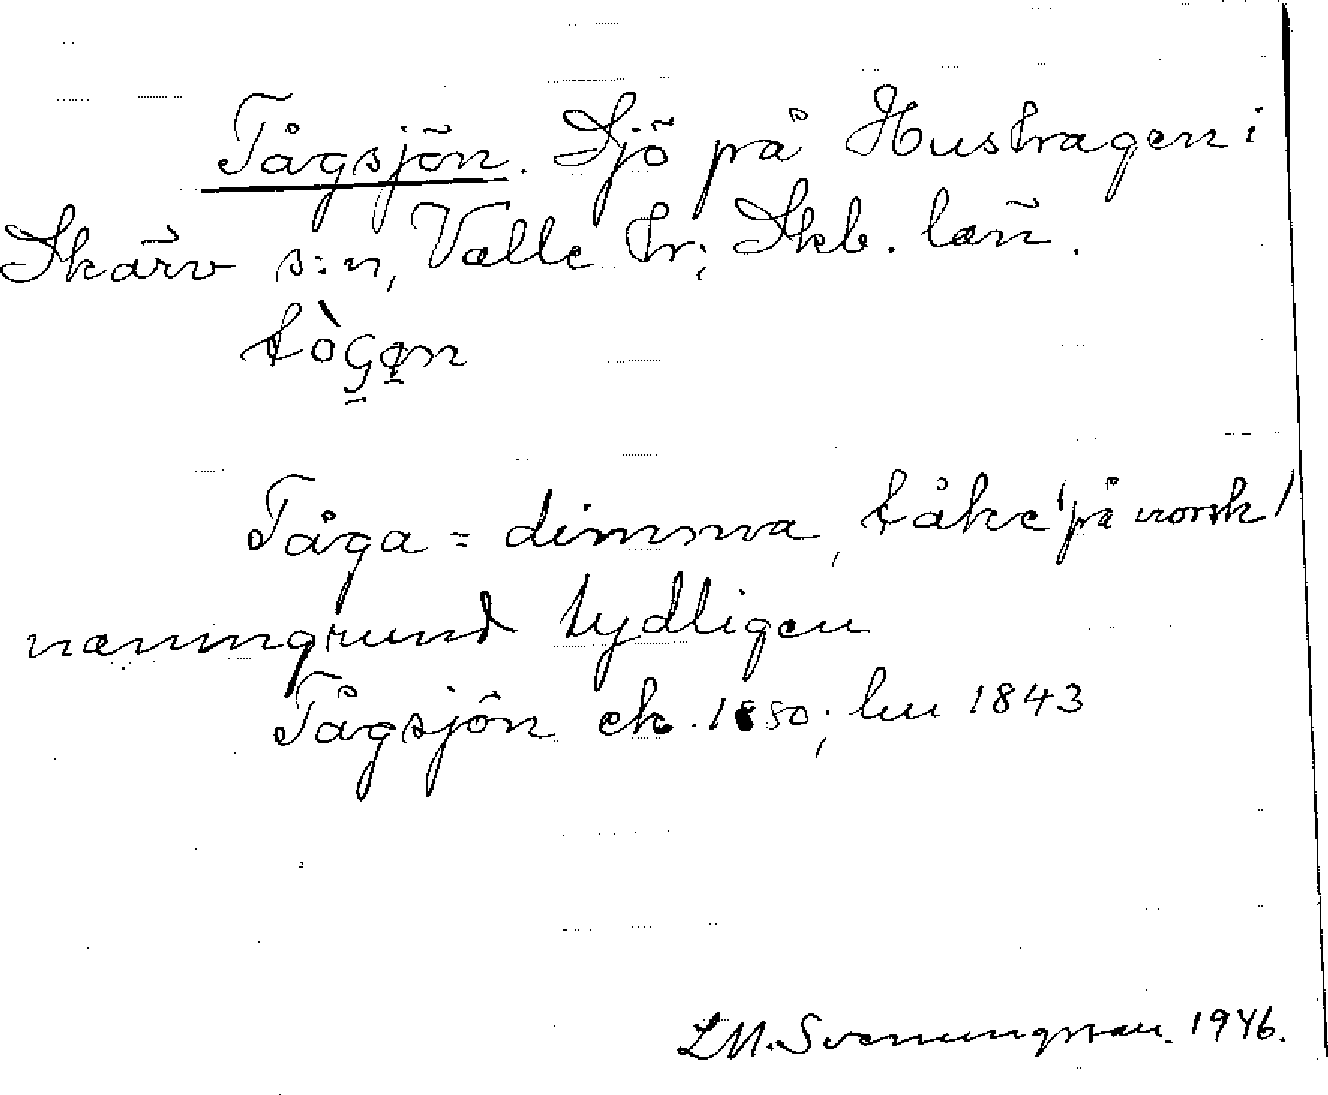 Tågsjön. Sjö på Hustragen i
Skärv s:n, Valle hr; Skb. län.
tògen
Tåga = dimma, tåke på norsk
namngrund tydligen
Tågsjön ek. 1880; lm 1843
LM. Svenungsson. 1946.